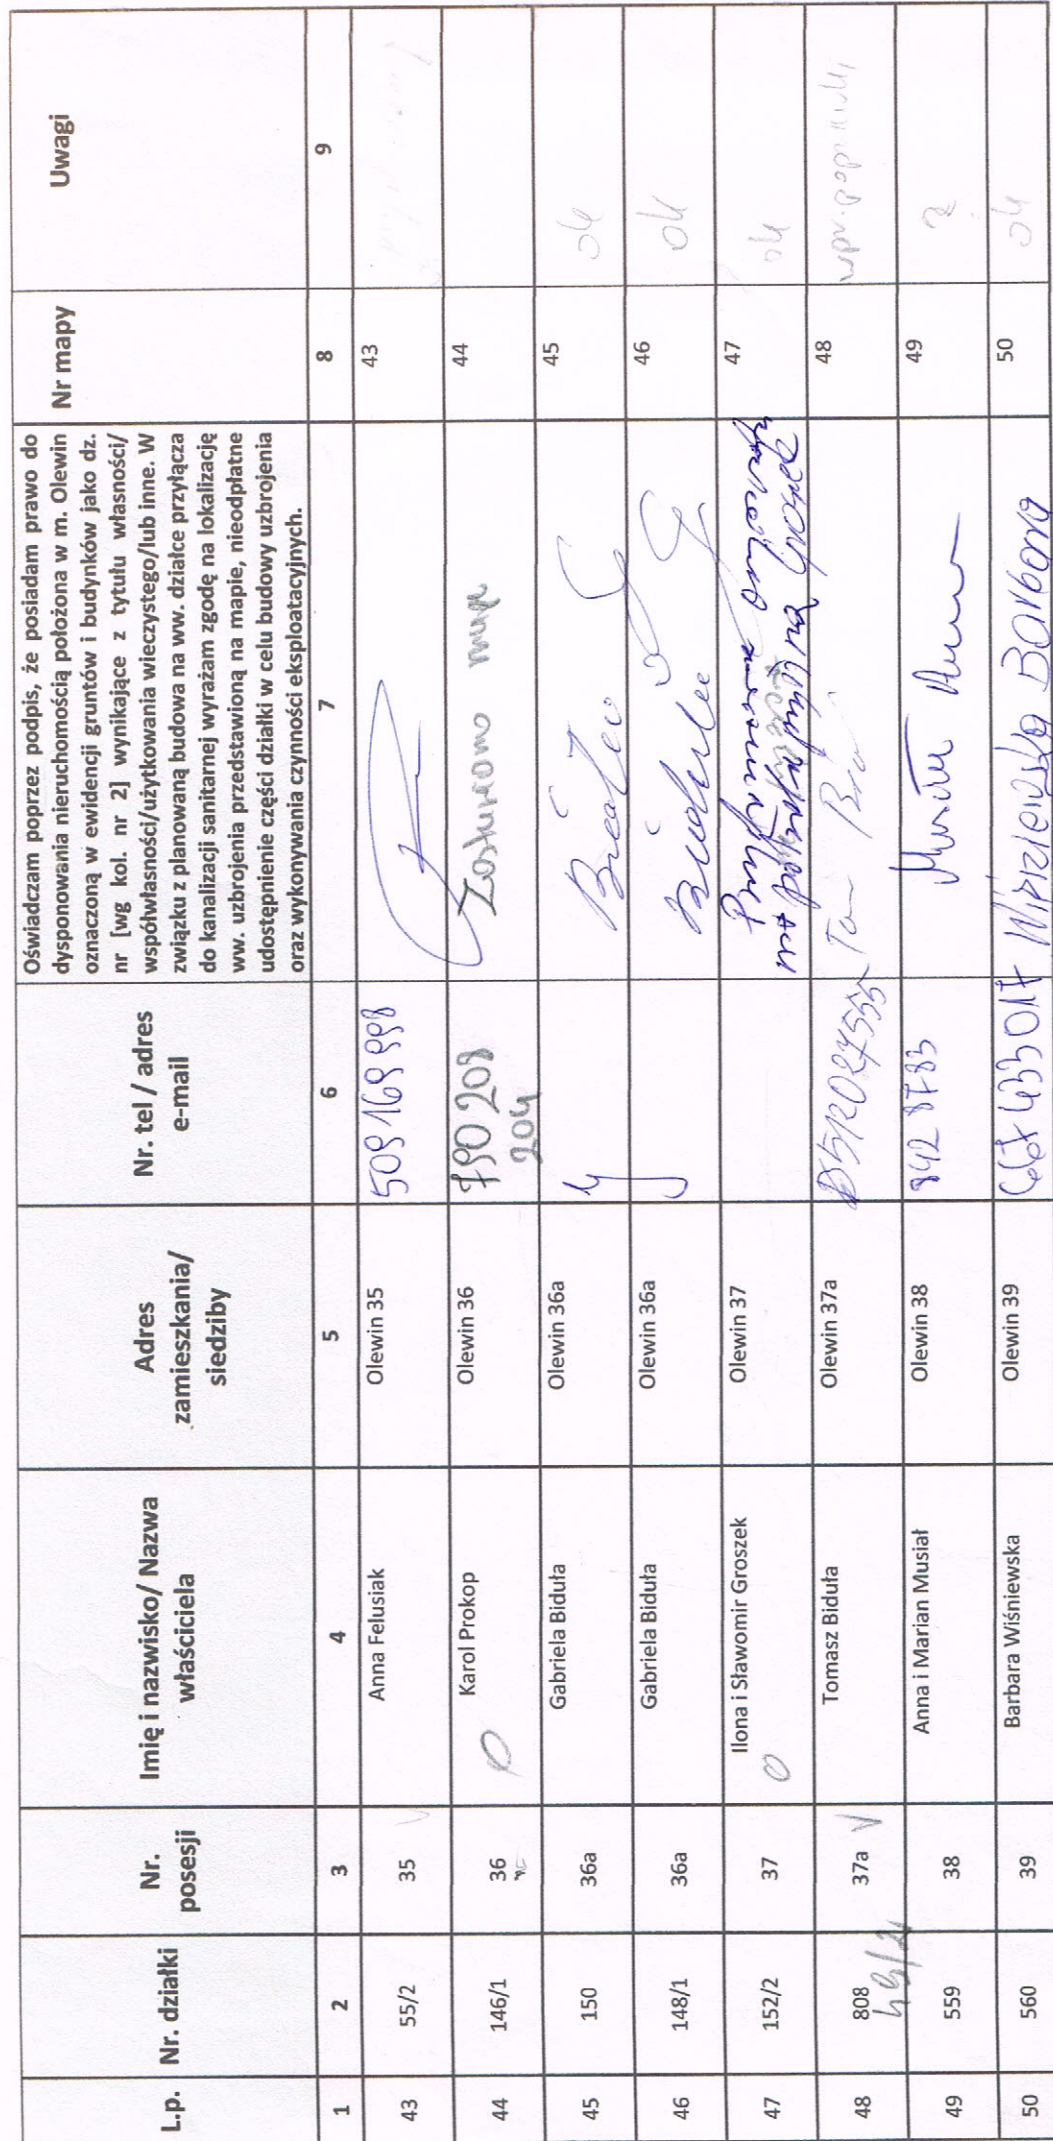 L.p.
Nr. działki
Nr.
posesji
Imię i nazwisko/ Nazwa
właściciela
Adres
zamieszkania/
siedziby
Nr. tel / adres
e-mail
Oświadczam poprzez podpis, że posiadam prawo do
dysponowania nieruchomością położona w m. Olewin
oznaczoną w ewidencji gruntów i budynków jako dz.
nr [wg kol. nr 2] wynikające z tytułu własności/
współwłasności/użytkowania wieczystego/lub inne. W
związku z planowaną budowa na ww. działce przyłącza
do kanalizacji sanitarnej wyrażam zgodę na lokalizację
ww. uzbrojenia przedstawioną na mapie, nieodpłatne
udostępnienie części działki w celu budowy uzbrojenia
oraz wykonywania czynności eksploatacyjnych.
Nr mapy
Uwagi
1 2 3 4 5 6 7 8 9
43 55/2 35 Anna Felusiak Olewin 35 509 169 998 43
44 146/1 36 Karol Prokop Olewin 36 790 208 Zostawiono mapę 44
204
45 150 36a Gabriela Biduła Olewin 36a 45 ok
46 148/1 36a Gabriela Biduła Olewin 36a 46 ok
47 152/2 37 Ilona i Sławomir Groszek Olewin 37 47 ok
48 808 37a V Tomasz Biduła Olewin 37a 48
49 559 38 Anna i Marian Musiał Olewin 38 842 8783 49 ?
50 560 39 Barbara Wiśniewska Olewin 39 667433017 Wiśniewska Barbara 50 ok